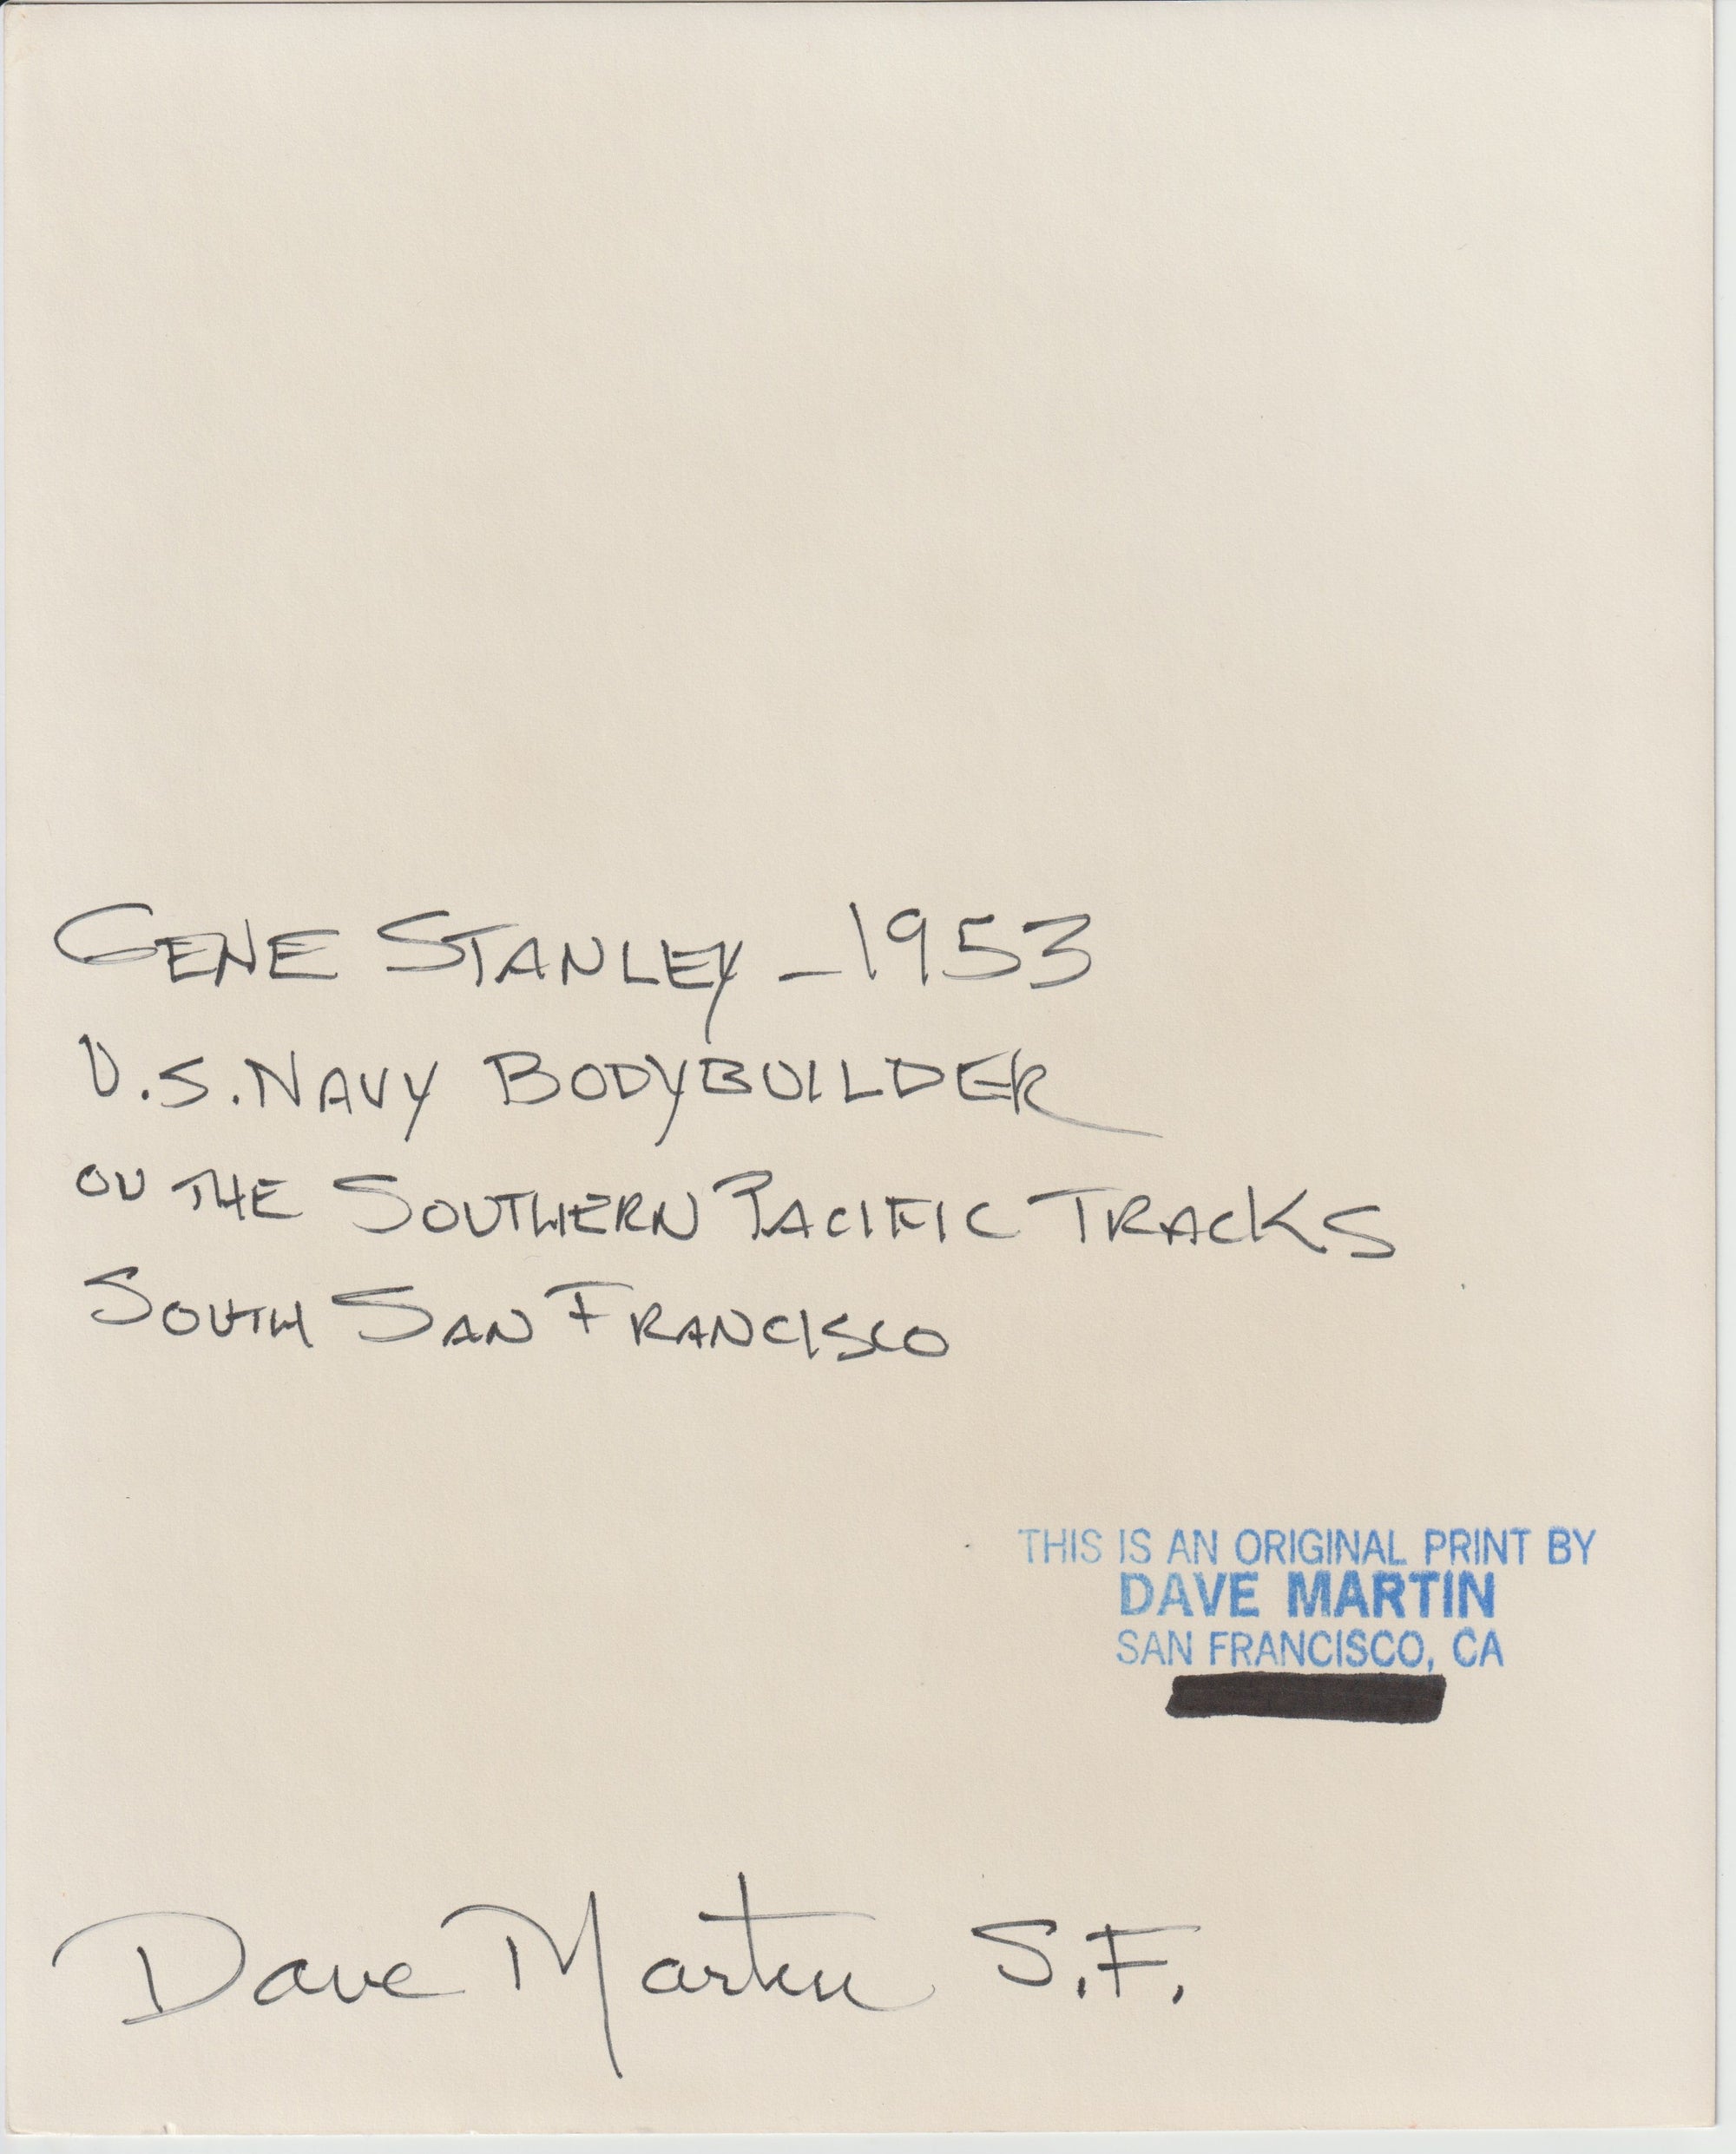 GENE STANLEY - 1953
U.S. NAVY BODYBUILDER
ON THE SOUTHERN PACIFIC TRACKS
SOUTH SAN FRANCISCO
THIS IS AN ORIGINAL PRINT BY
DAVE MARTIN
SAN FRANCISCO, CA
Dave Martin S.F.